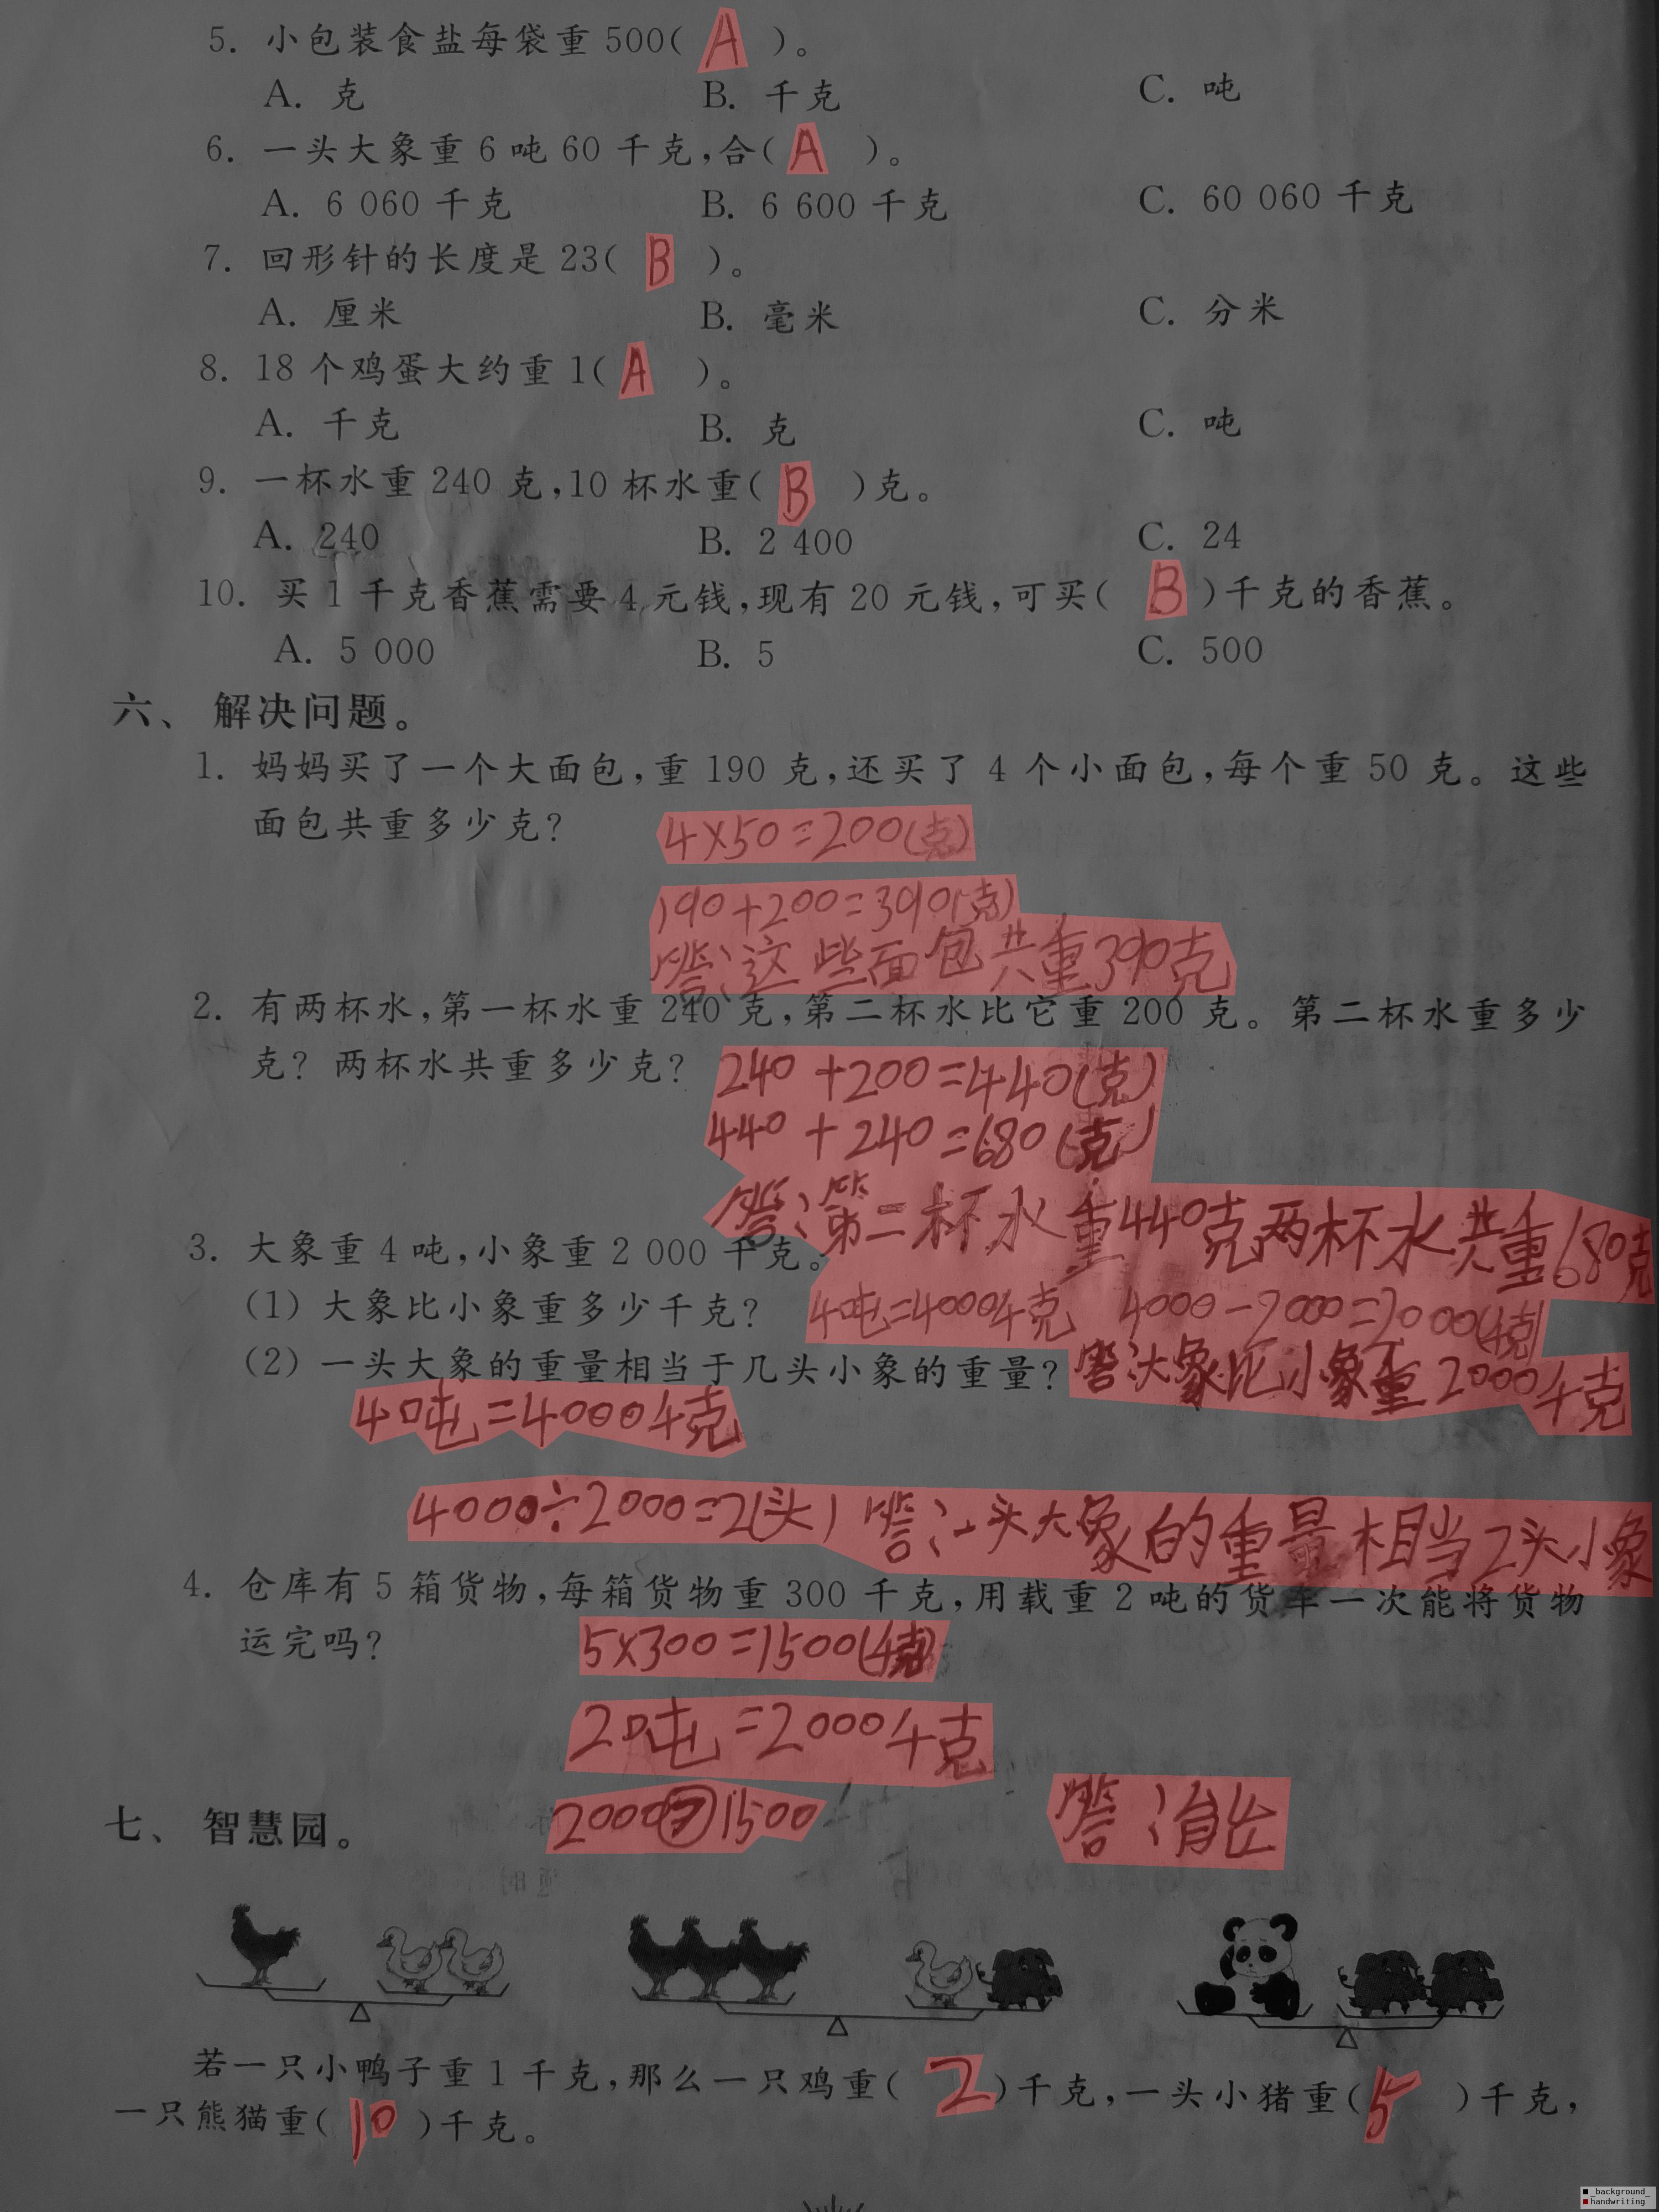 5. 小包装食盐每袋重 500( A )。
A. 克 B. 千克 C. 吨
6. 一头大象重 6 吨 60 千克,合( A )。
A. 6 060 千克 B. 6 600 千克 C. 60 060 千克
7. 回形针的长度是 23( B )。
A. 厘米 B. 毫米 C. 分米
8. 18 个鸡蛋大约重 1( A )。
A. 千克 B. 克 C. 吨
9. 一杯水重 240 克,10 杯水重( B )克。
A. 240 B. 2 400 C. 24
10. 买 1 千克香蕉需要 4 元钱,现有 20 元钱,可买( B )千克的香蕉。
A. 5 000 B. 5 C. 500
六、 解决问题。
1. 妈妈买了一个大面包,重 190 克,还买了 4 个小面包,每个重 50 克。这些
面包共重多少克? 4×50=200(克)
190+200=390(克)
答:这些面包共重390克
2. 有两杯水,第一杯水重 240 克,第二杯水比它重 200 克。第二杯水重多少
克? 两杯水共重多少克? 240+200=440(克)
440+240=680(克)
答:第二杯水重440克两杯水共重680克
3. 大象重 4 吨,小象重 2 000 千克。
(1) 大象比小象重多少千克? 4吨=4000千克 4000-2000=2000(千克)
(2) 一头大象的重量相当于几头小象的重量? 答:大象比小象重2000千克
4吨=4000千克
4000÷2000=2(头) 答:一头大象的重量相当2头小象
4. 仓库有 5 箱货物,每箱货物重 300 千克,用载重 2 吨的货车一次能将货物
运完吗? 5×300=1500(千克)
2吨=2000千克
2000>1500 答:能
七、 智慧园。
若一只小鸭子重 1 千克,那么一只鸡重( 2 )千克,一头小猪重( 5 )千克,
一只熊猫重( 10 )千克。
_background_
handwriting